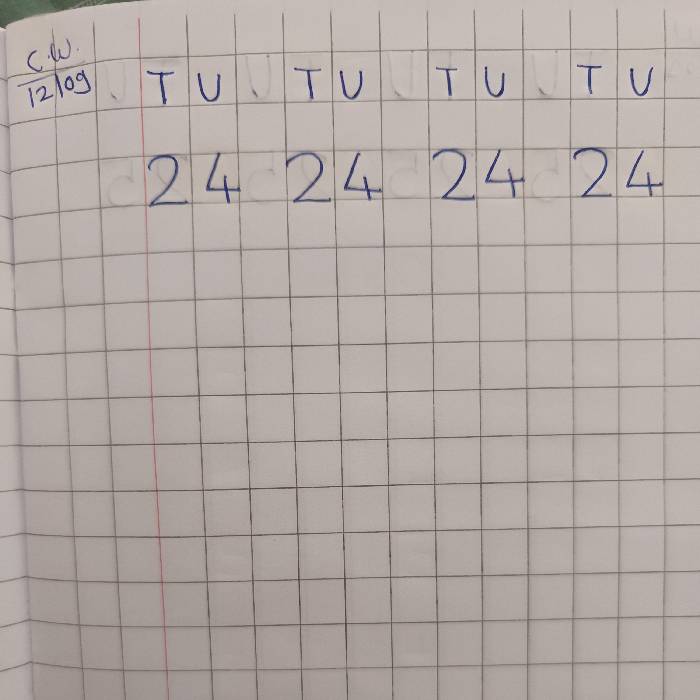 C.W.
12/09
T U T U T U T U
24 24 24 24